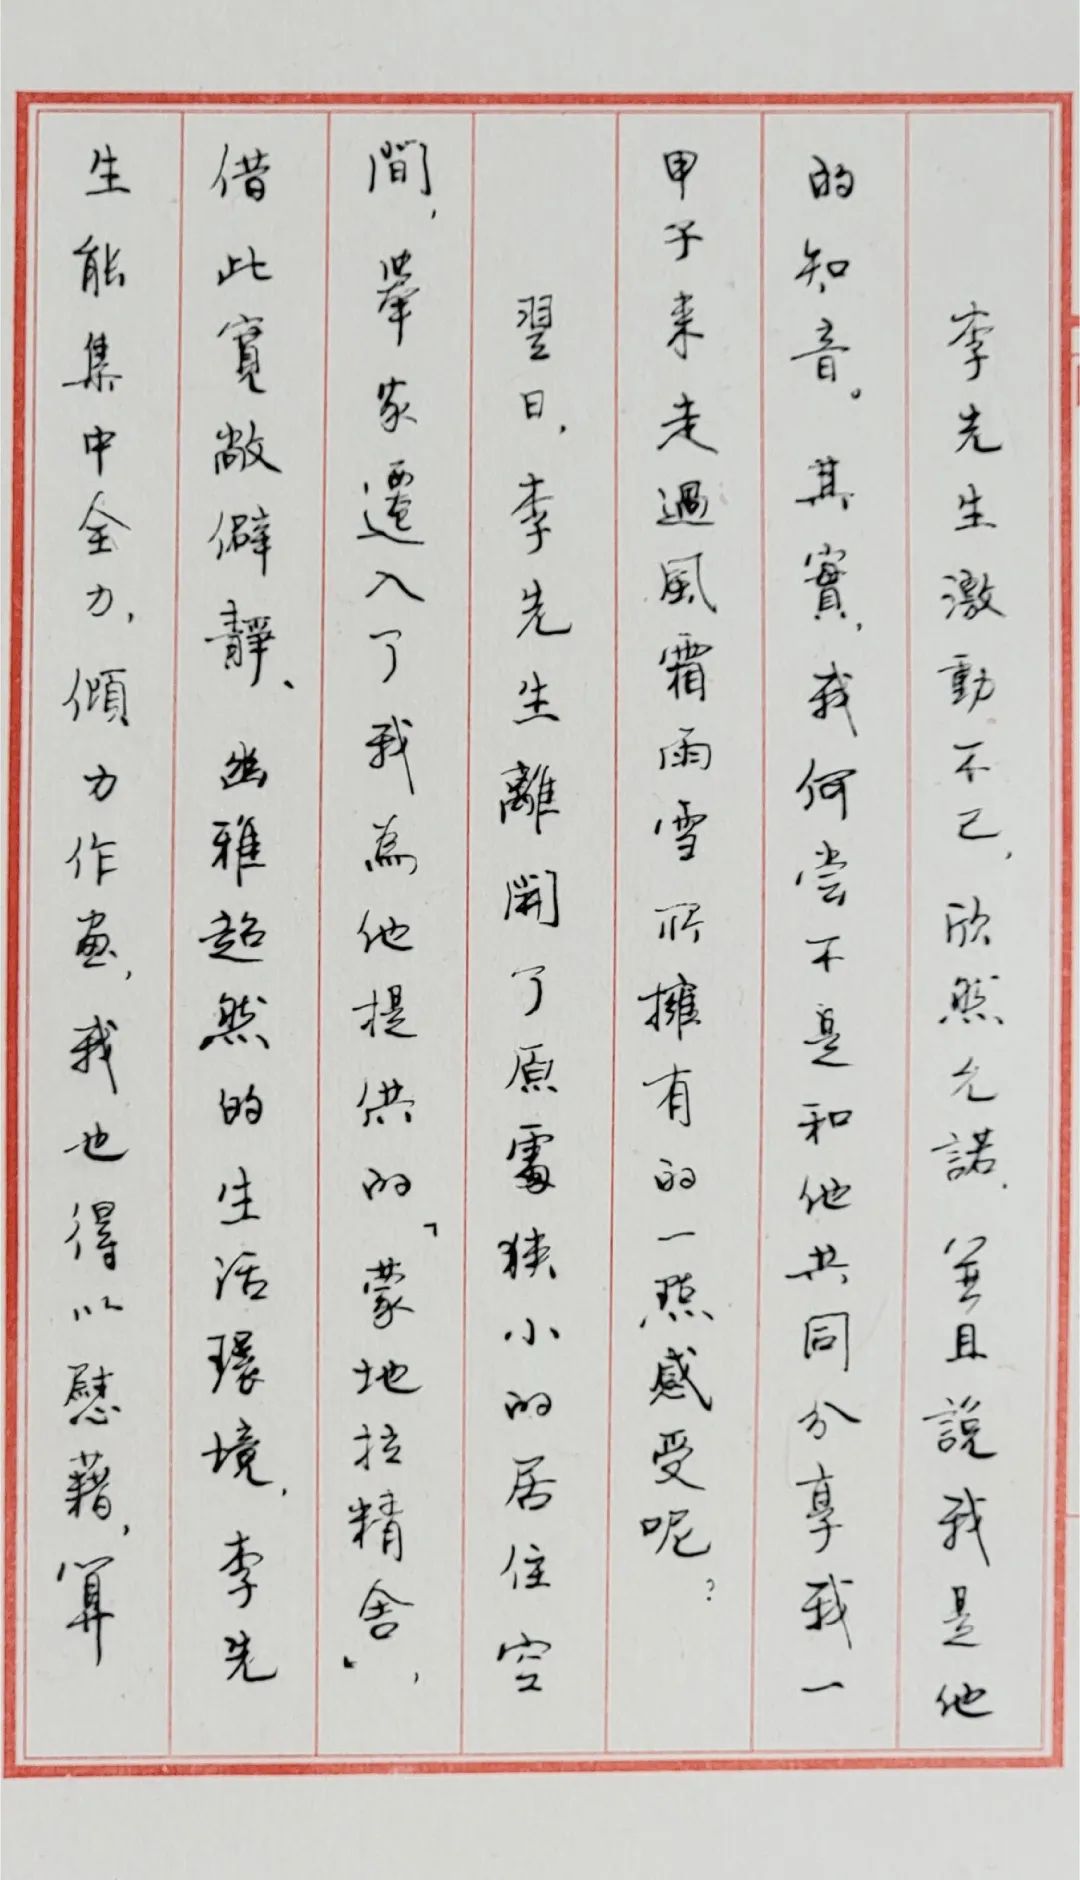 李先生激動不已，欣然允諾，並且說我是他
的知音。其實，我何嘗不是和他共同分享我一
甲子来走過風霜雨雪所擁有的一點感受呢？
翌日，李先生離開了原處狹小的居住空
間，舉家遷入了我為他提供的「蒙地拉精舍」，
借此寬敞僻靜、幽雅超然的生活環境，李先
生能集中全力，傾力作畫，我也得以慰藉，算